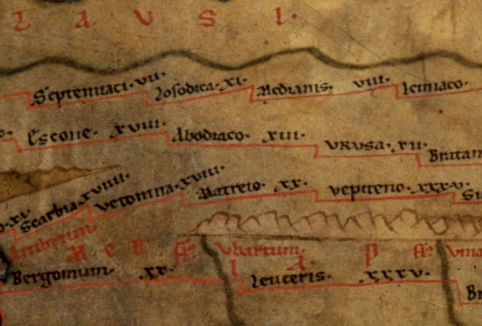 A V S I.
Septemiaci. VII. Losodica. XI. Medianis. VIII. Iciniaco.
Escone. XVIII. Abodiaco. XIII. VRVSA. XII. Britan
Scarbia. XVIIII. Vetonina. XVIII. Matreio. XX. Vepiteno. XXXV.
M e D fl. Vbartum. P fl.
Bergomum. XX. Leuceris. XXXV.